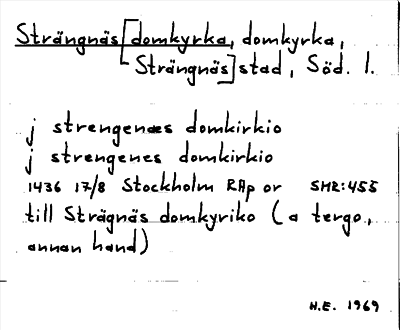 Strängnäs [domkyrka, domkyrka,
Strängnäs] stad, Söd. l.
j strengenæs domkirkio
j strengenes domkirkio
1436 17/8 Stockholm RAp or SMR:455
till Strägnäs domkyriko (a tergo,
annan hand)
H.E. 1969